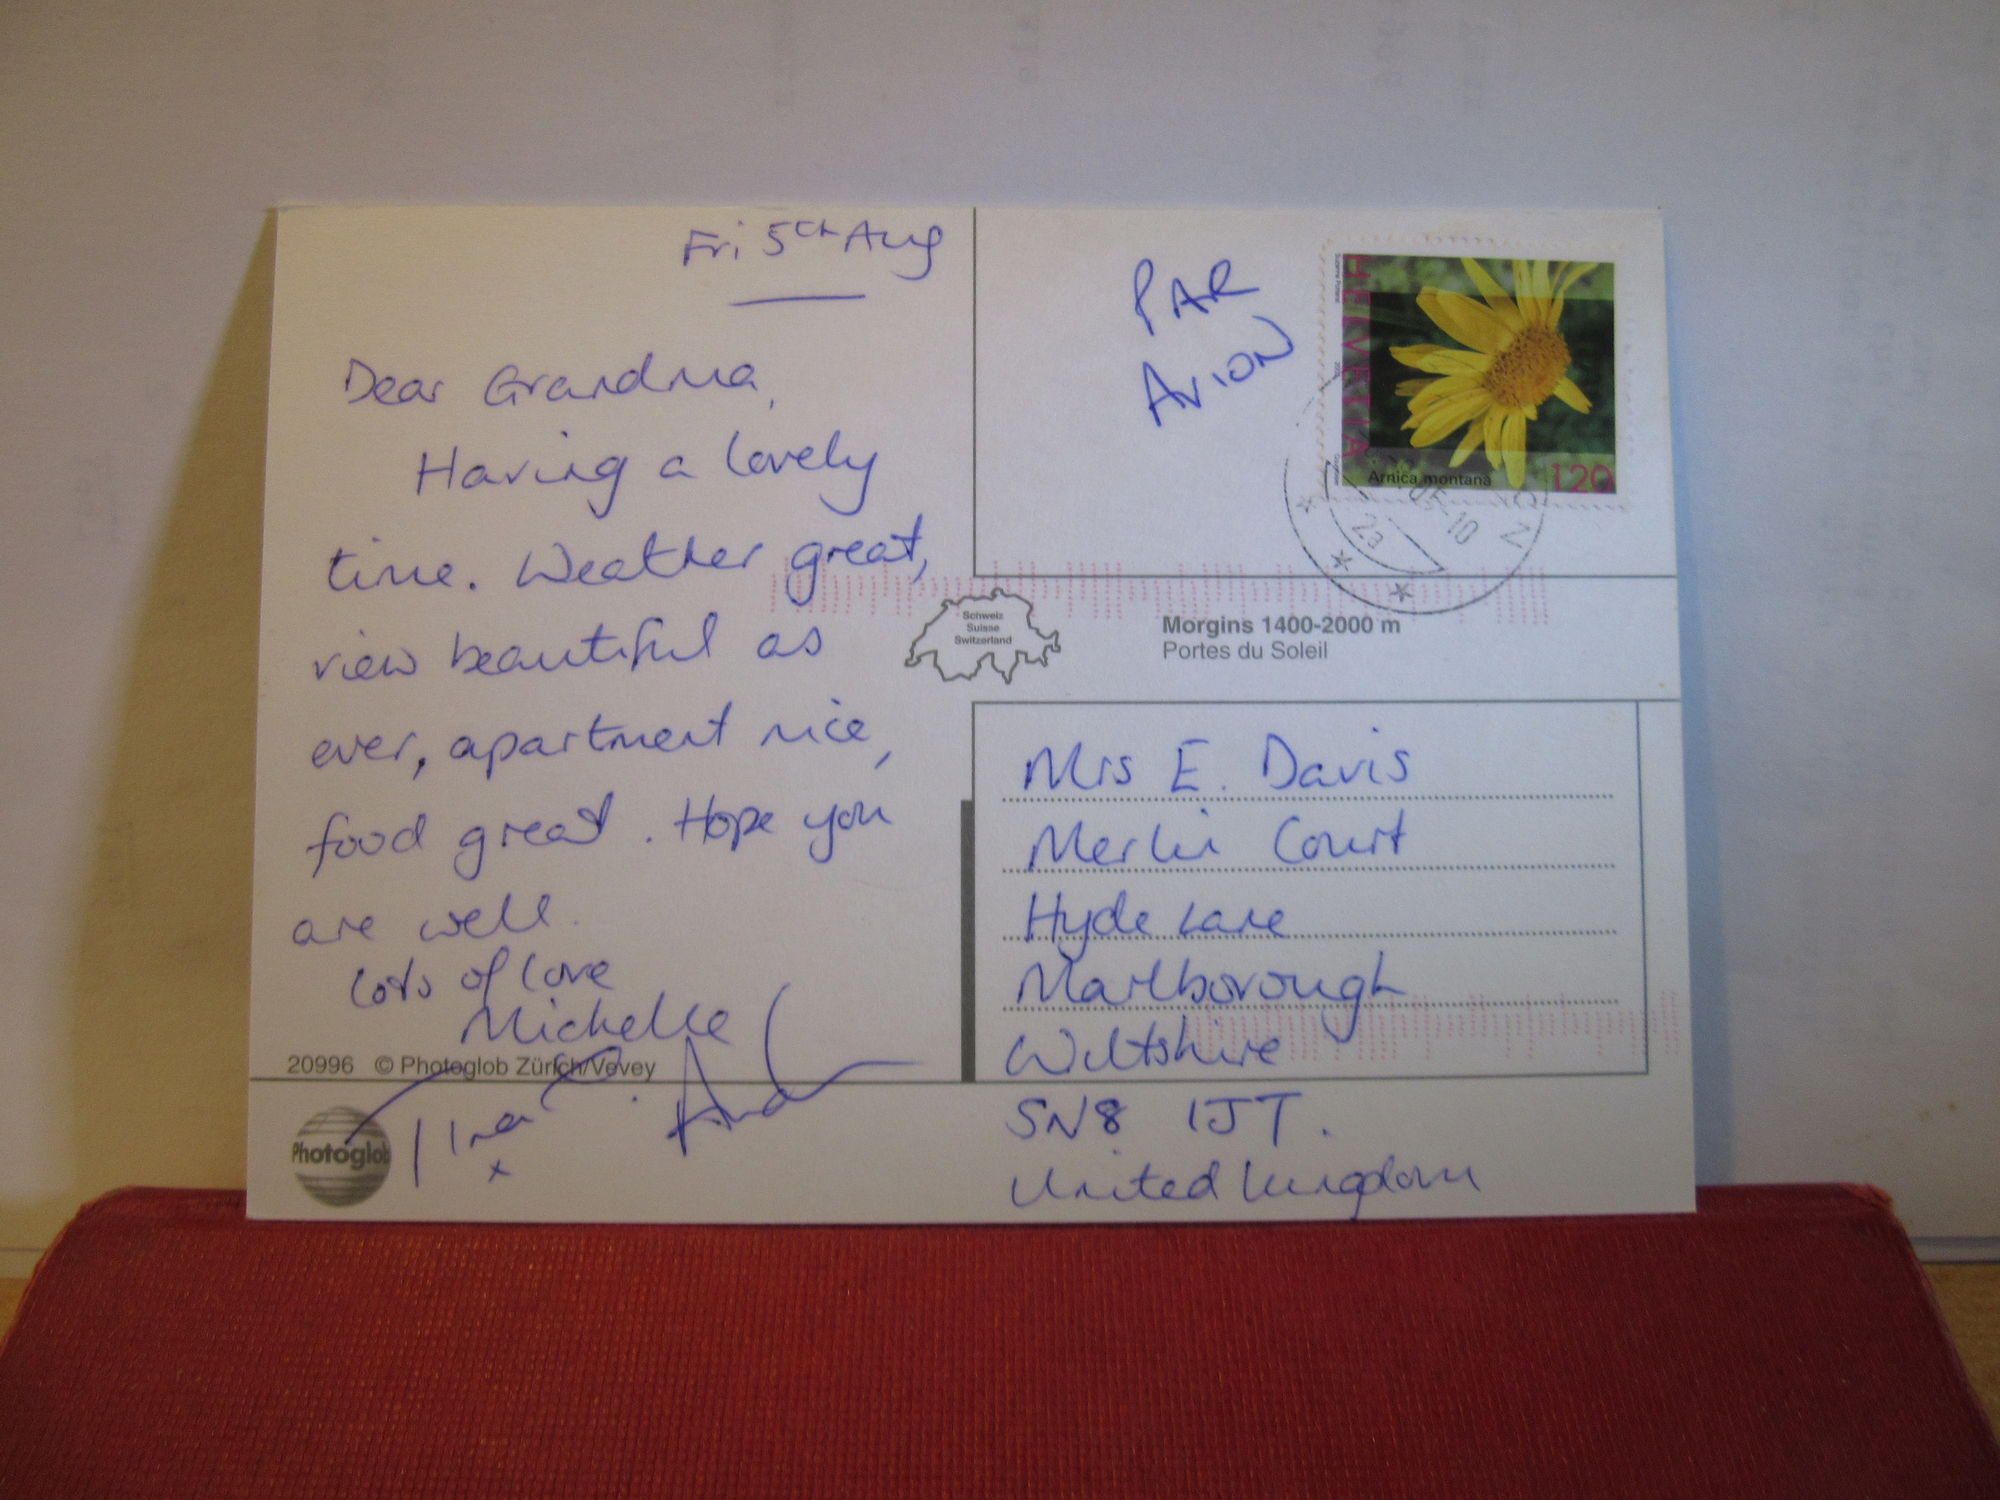 Fri 5th Aug
Dear Grandma,
Having a lovely
time. Weather great,
view beautiful as
ever, apartment nice,
food great. Hope you
are well.
Lots of love
Michelle
Tina
x
20996 © Photoglob Zürich/Vevey
Photoglob
PAR
AVION
HELVETIA
Arnica montana
120
Schweiz
Suisse
Switzerland
Morgins 1400-2000 m
Portes du Soleil
Mrs E. Davis
Merlin Court
Hyde Lane
Marlborough
Wiltshire
SN8 1JT.
United Kingdom